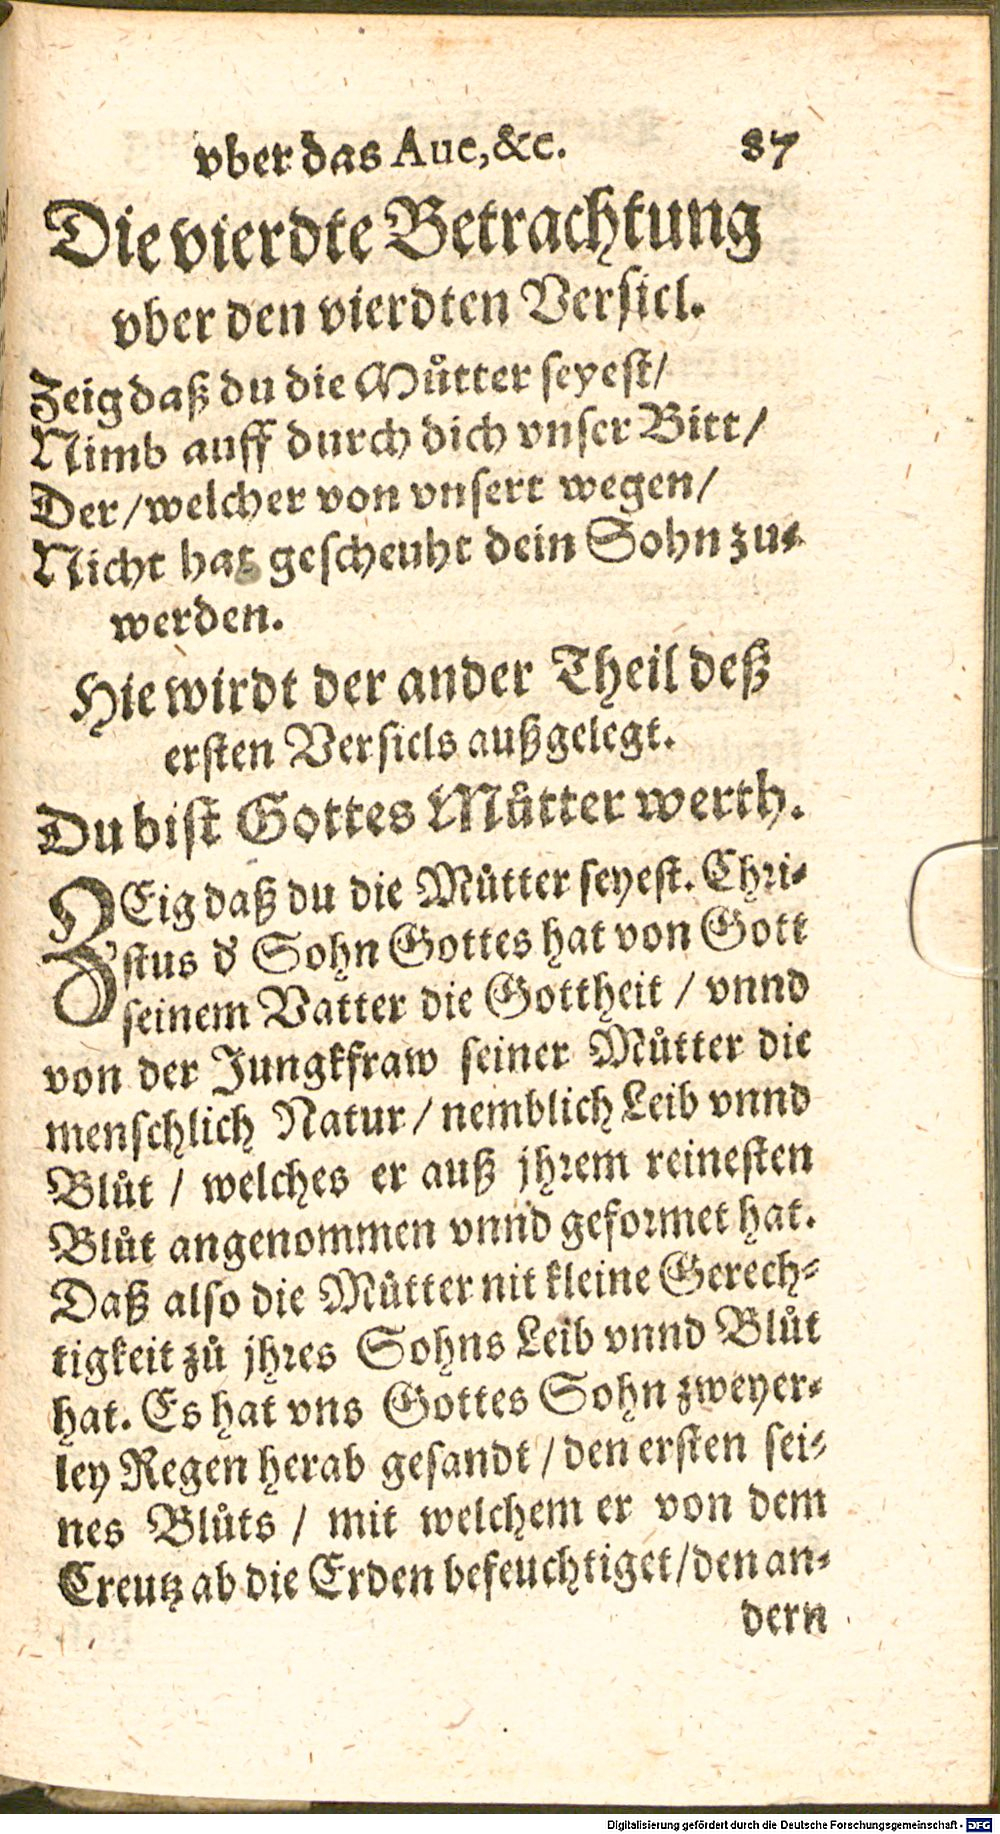 vber das Aue, &c. 87
Die vierdte Betrachtung
vber den vierdten Versicl.
Zeig daß du die Můtter seyest/
Nimb auff durch dich vnser Bitt/
Der/welcher von vnsert wegen/
Nicht hat gescheuht dein Sohn zu-
werden.
Hie wirdt der ander Theil deß
ersten Versicls außgelegt.
Du bist Gottes Můtter werth.
ZEig daß du die Můtter seyest. Chri-
stus d' Sohn Gottes hat von Gott
seinem Vatter die Gottheit / vnnd
von der Jungkfraw seiner Můtter die
menschlich Natur / nemblich Leib vnnd
Blůt / welches er auß jhrem reinesten
Blůt angenommen vnnd geformet hat.
Daß also die Můtter nit kleine Gerech-
tigkeit zů jhres Sohns Leib vnnd Blůt
hat. Es hat vns Gottes Sohn zweyer-
ley Regen herab gesandt / den ersten sei-
nes Blůts / mit welchem er von dem
Creutz ab die Erden befeuchtiget/den an-
dern
Digitalisierung gefördert durch die Deutsche Forschungsgemeinschaft - DFG